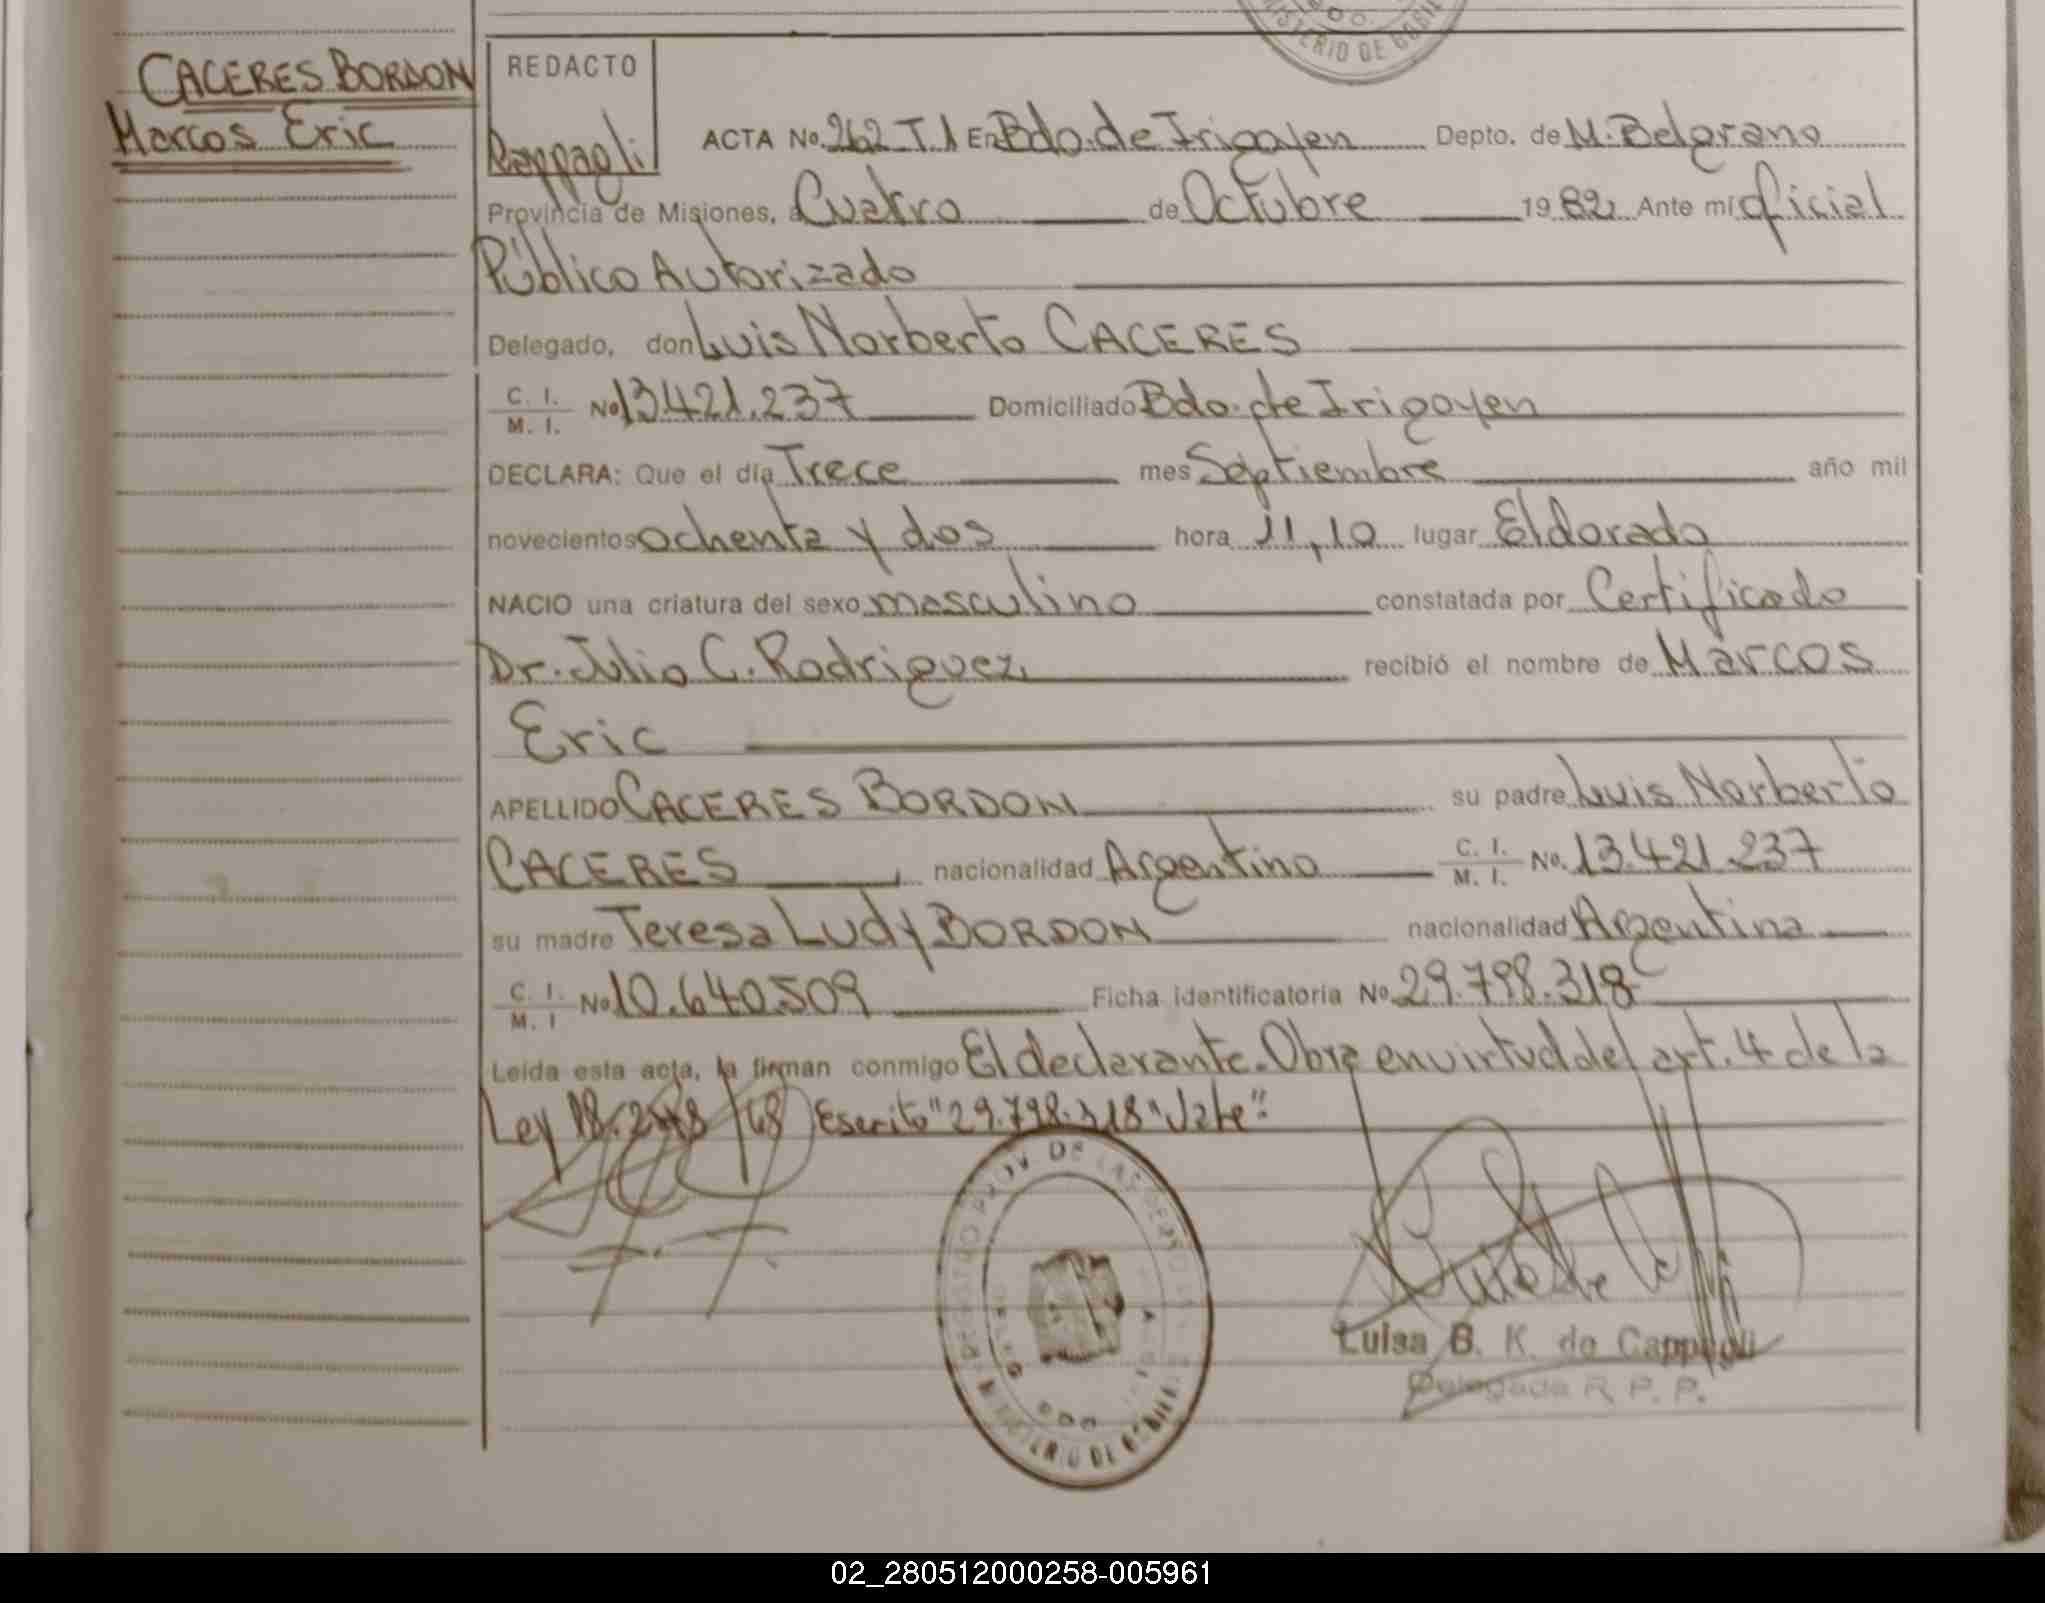 MINISTERIO DE GOBIE
CACERES BORDON
Marcos Eric
REDACTO
Cappagli
ACTA No. 262 T. 1 En Bdo. de Irigoyen Depto. de M. Belgrano
Provincia de Misiones, a Cuatro de Octubre 1982 Ante mí oficial
Público Autorizado
Delegado, don Luis Norberto CACERES
C. I. M. I. No 13.421.237 Domiciliado Bdo. de Irigoyen
DECLARA: Que el día Trece mes Septiembre año mil
novecientos ochenta y dos hora 11,10 lugar Eldorado
NACIO una criatura del sexo masculino constatada por Certificado
Dr. Julio C. Rodriguez recibió el nombre de Marcos
Eric
APELLIDO CACERES BORDON su padre Luis Norberto
CACERES nacionalidad Argentino C. I. M. I. No. 13.421.237
su madre Teresa Ludy BORDON nacionalidad Argentina
C. I. M. I No 10.640.509 Ficha identificatoria No 29.798.318
Leída esta acta, la firman conmigo El declarante. Obra en virtud del art. 4 de la
Ley 18.248/68 Escrito "29.798.318" Vale".
Luisa B. K. de Cappagli
Delegada R. P. P.
MINISTERIO DE GOBIE
02_280512000258-005961